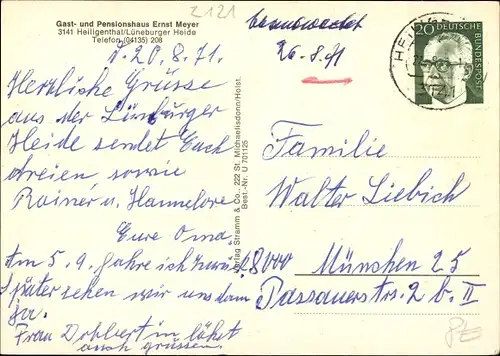 Z 121
Gast- und Pensionshaus Ernst Meyer
3141 Heiligenthal/Lüneburger Heide
Telefon (04135) 208
d. 20.8.71.
Herzliche Grüsse
aus der Lüneburger
Heide sendet Euch
dreien sowie
Rainer u. Hannelore
Eure Oma
Am 5.9. fahre ich
Später sehen wir uns dann
ja.
Frau Dobbertin läßt
auch grüssen.
Verlag Stramm & Co., 222 St. Michaelisdonn/Holst.
Best.-Nr. U 701/25
beantwortet
26.8.71
20 DEUTSCHE BUNDESPOST
Familie
Walter Liebich
8000 München 25
Passauerstrs. 2 b. II